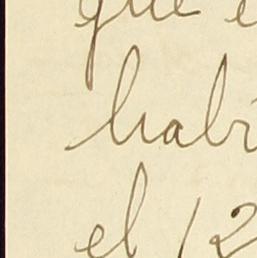 que e
habi
el 12